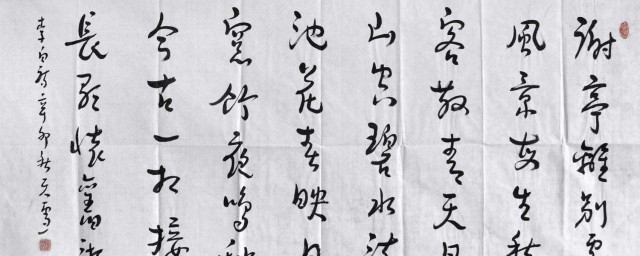 謝亭離别
風景每生
客散青天月
山空碧水
池花春映日
窓竹夜鳴
今古一相接
長歌懷舊
李白詩辛卯秋